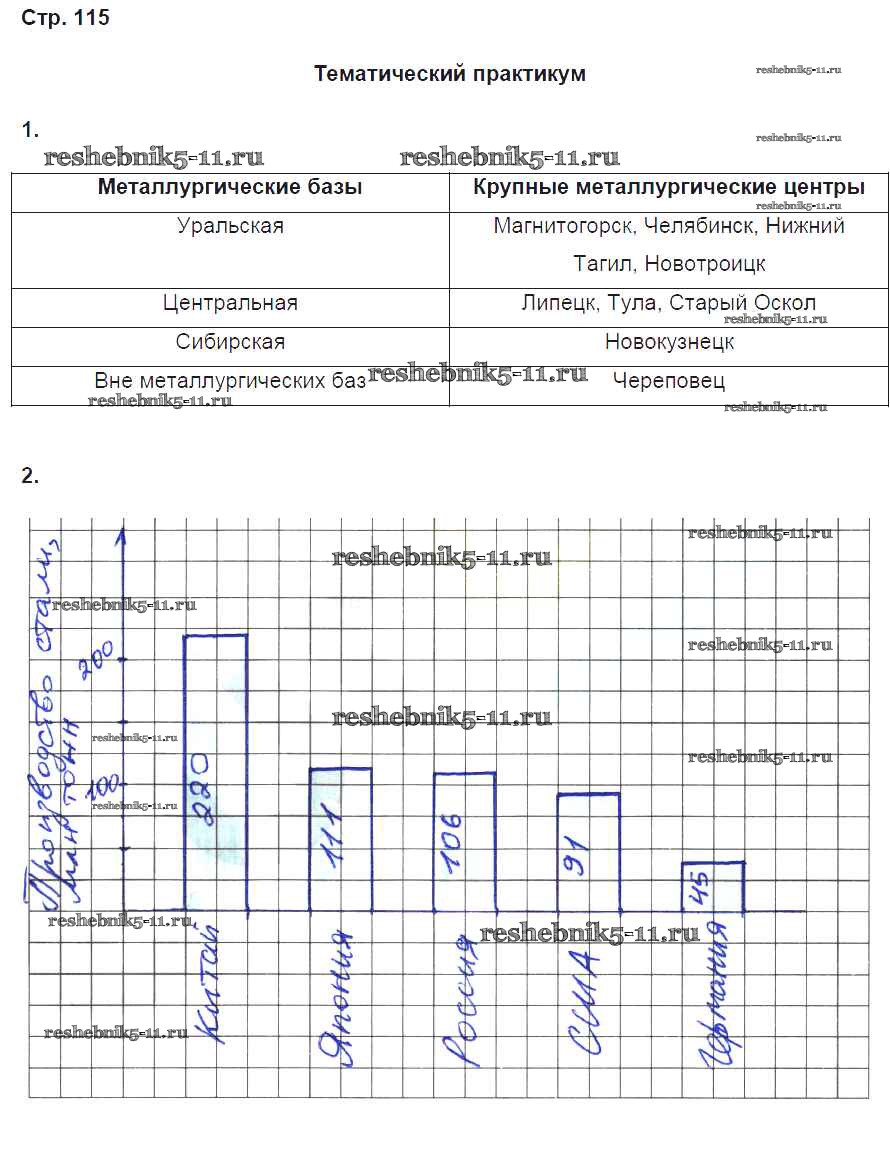 Стр. 115
Тематический практикум
reshebnik5-11.ru
1.
reshebnik5-11.ru
reshebnik5-11.ru
reshebnik5-11.ru
Металлургические базы
Крупные металлургические центры
reshebnik5-11.ru
Уральская
Магнитогорск, Челябинск, Нижний
Тагил, Новотроицк
Центральная
Липецк, Тула, Старый Оскол
reshebnik5-11.ru
Сибирская
Новокузнецк
Вне металлургических баз
reshebnik5-11.ru
Череповец
reshebnik5-11.ru
reshebnik5-11.ru
2.
Производство стали,
млн тонн
reshebnik5-11.ru
reshebnik5-11.ru
reshebnik5-11.ru
200
reshebnik5-11.ru
reshebnik5-11.ru
reshebnik5-11.ru
reshebnik5-11.ru
100
reshebnik5-11.ru
220
111
106
91
45
reshebnik5-11.ru
reshebnik5-11.ru
Китай
Япония
Россия
США
Германия
reshebnik5-11.ru